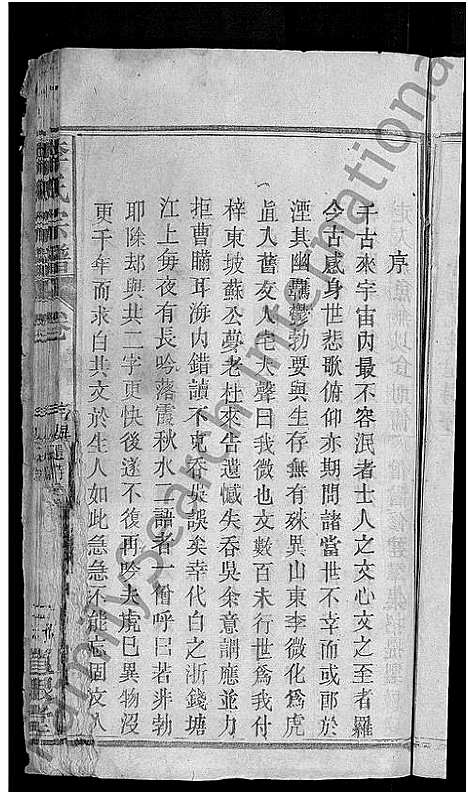 序
千古來宇宙內最不容泯者士人之文心文之至者羅
今古感身世悲歌俯仰亦期問諸當世不幸而或即於
湮其幽鬱勃要與生存無有殊異山東李微化爲虎
眞入舊友人宅大聲曰我微也文數百未行世爲我付
梓東坡蘇公夢老杜來告遺憾失吞吳余意謂應並力
拒曹瞞耳海内錯讀不克吞吳誤矣幸代白之浙錢塘
江上每夜有長吟落霞秋水二語者一僧呼曰若非勃
耶除却與共二字更快後遂不復再吟夫虎已異物沒
更千年而求白其文於生人如此急急不能忘固文人
李氏宗譜
卷
龍
堂
FamilySearch International